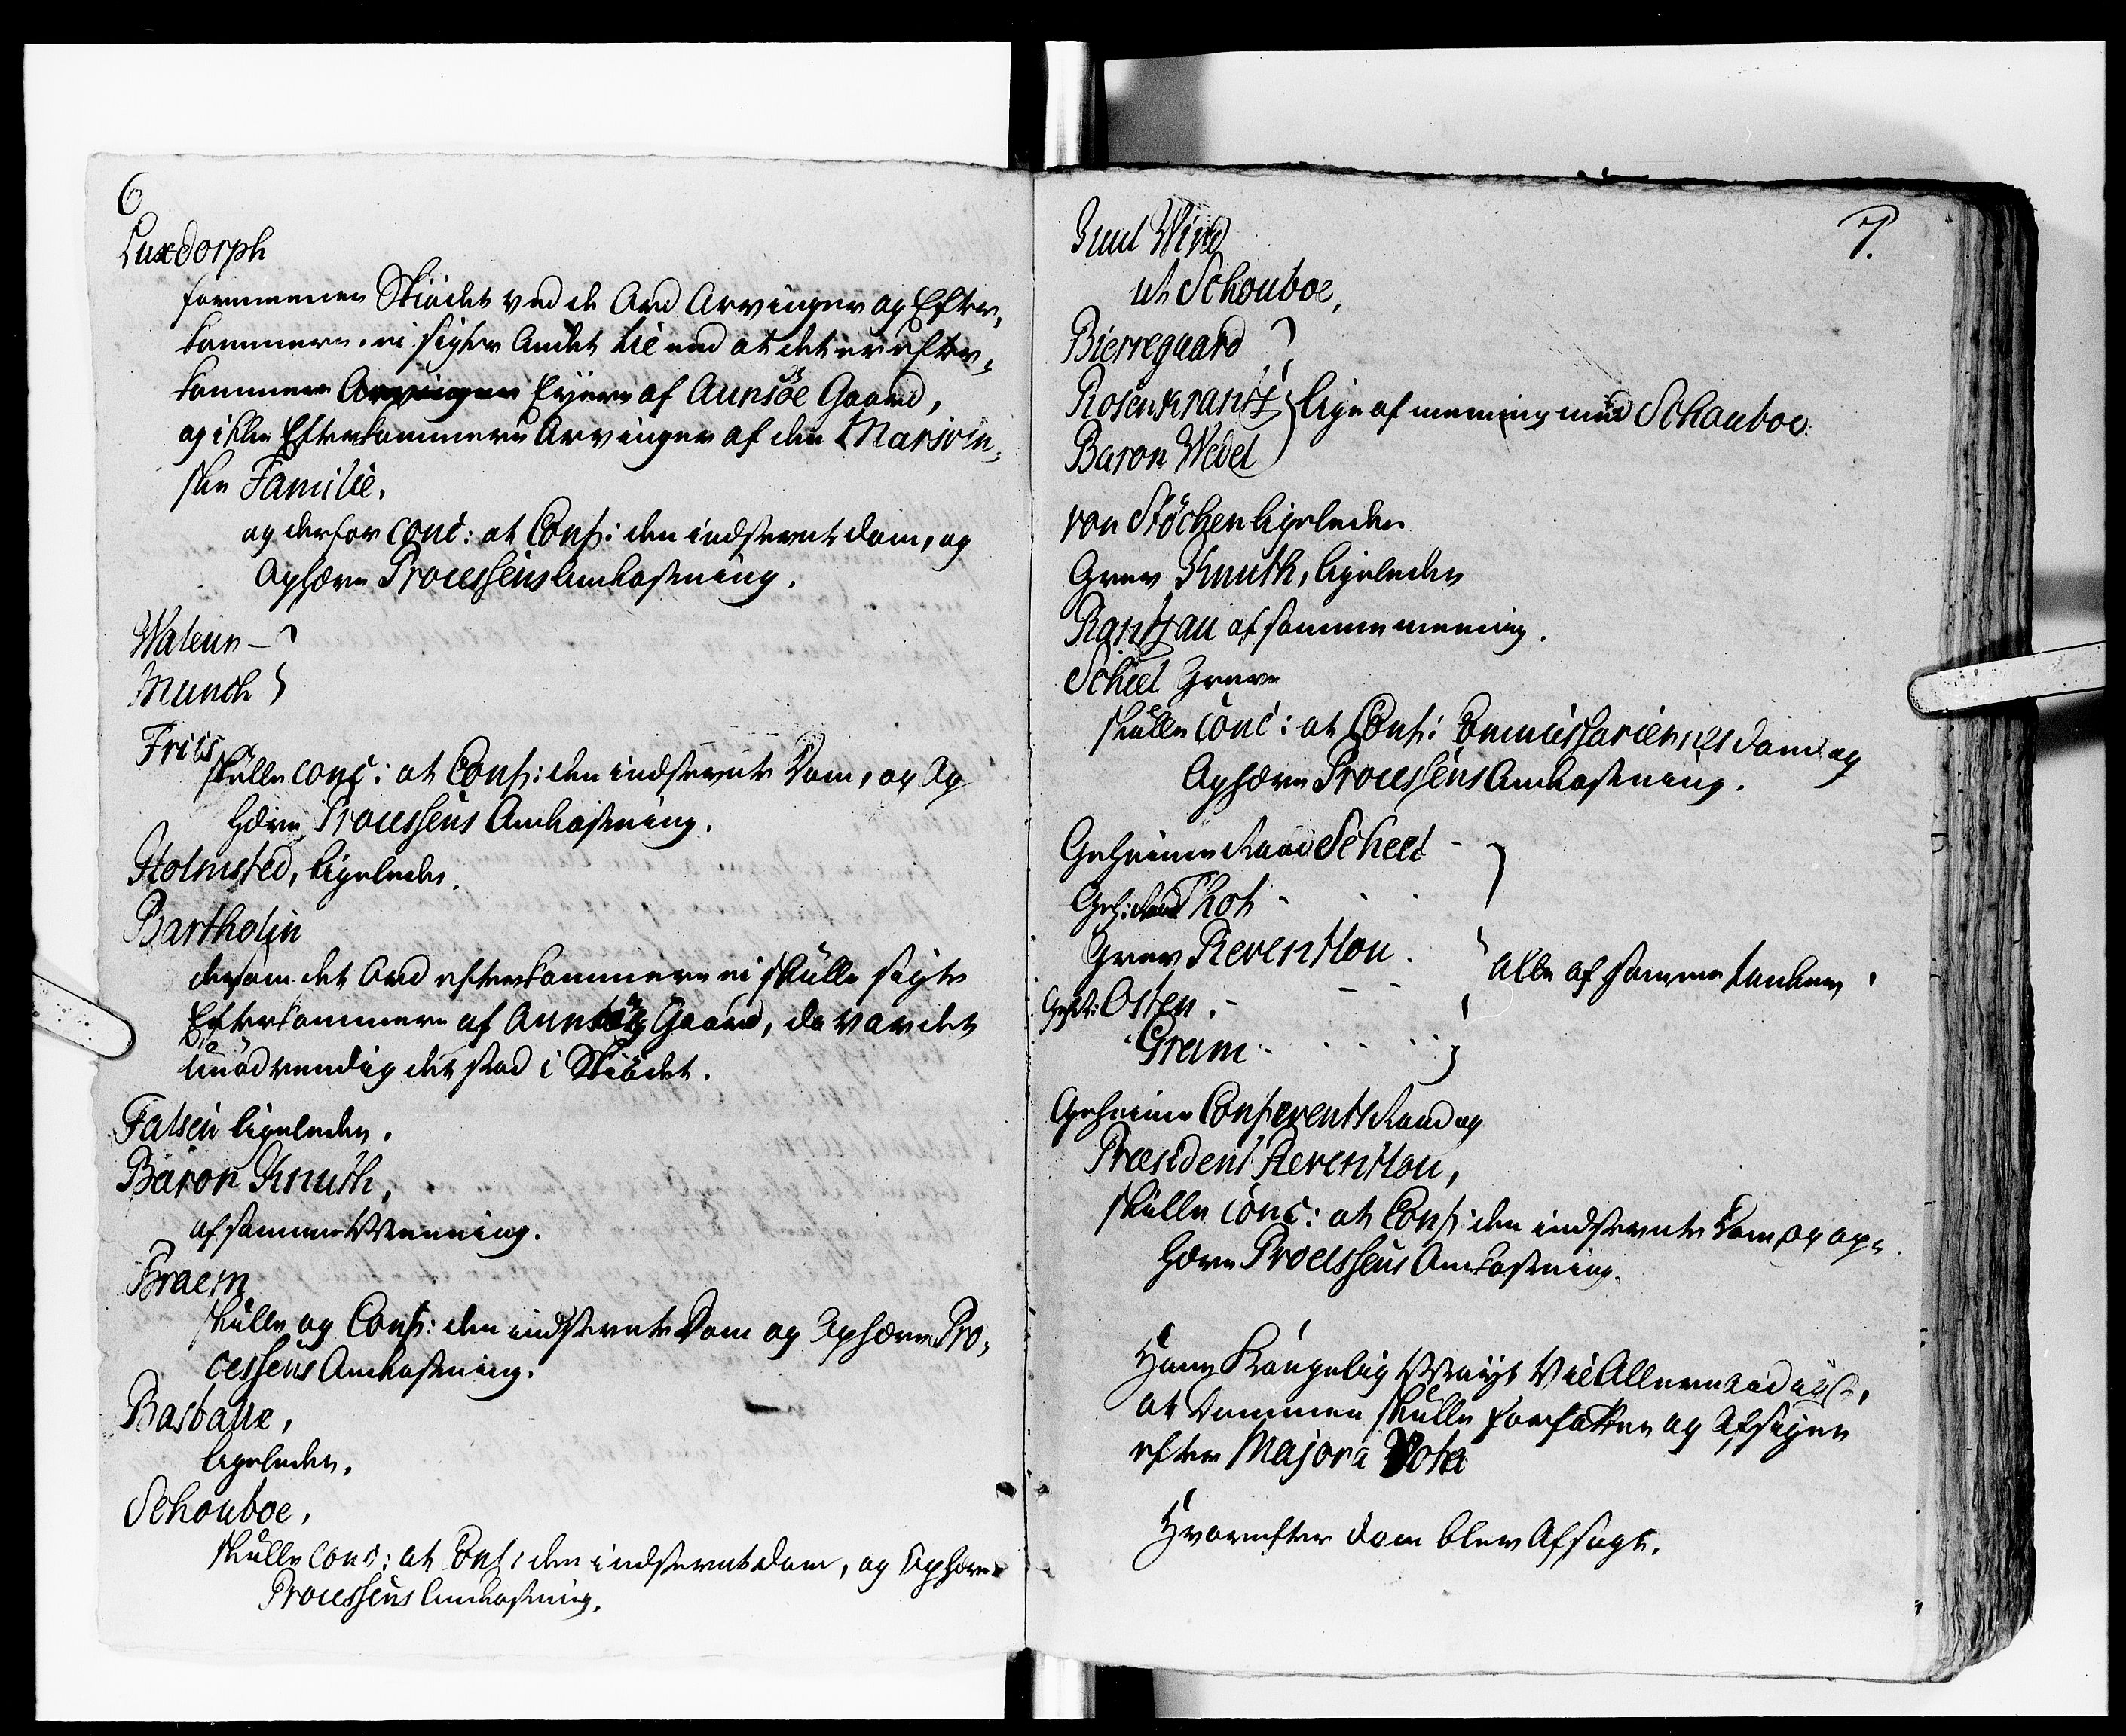 6
Luxdorph
formeener Skiödet ved de Ord Arvinger og Efter„
kommere, ei sigter Andet tie end at det er efter„
kommere Arvinger Eyere af Aunsöe Gaard,
og ikke Efterkommere Arvinger af den Marsvin„
ske Familie.
og derfor conc: at Conf: den indstevnte dom, og
Ophæve Processens Omkostning.
Waleur –
Munch
Friis
skulle conc: at Conf: den indstevnte Dom, og Op
hæve Processens Omkostning.
Holmsted, ligeledes.
Bartholin
dersom det Ord efterkommere ei skulle sigte
Efterkommere af Aunsöe Gaard, da var det
unödvendig det stod i Skiödet.
Falsen ligeledes.
Baron Knuth,
af samme Meening.
Braem
skulle og Conf: den indstevnte Dom og Ophæve Pro„
cessens Omkostning.
Bastalle,
ligeledes.
Schouboe,
skulle conc: at Conf: den indstevnte dom, og Ophæve
Processens Omkostning.
7.
Juul Wind
ut Schouboe,
Bierregaard
Rosenkrantz lige af meening med Schouboe
Baron Wedel
von Stöcken ligeledes
Grev Knuth, ligeledes
Rantzau af samme meening.
Scheel Greve
skulle conc: at Conf: Commissariernes dom og
Ophæve Processens Omkostning.
Geheime Raad Scheel -
Geh: Raad Thot -
Grev Reventlou. alle af samme tanker,
Osten. -
Gram -
Geheime Conferents Raad og
Præsident Reventlou,
skulle conc: at Conf: den indstevnte Dom, og op„
hæve Processens Omkostning.
Hans Kongelig Mayt Vil Allernaadigst,
at Dommen skulle forfattes og Afsiges
efter Majora Vota
Hvorefter dom blev Afsagt.